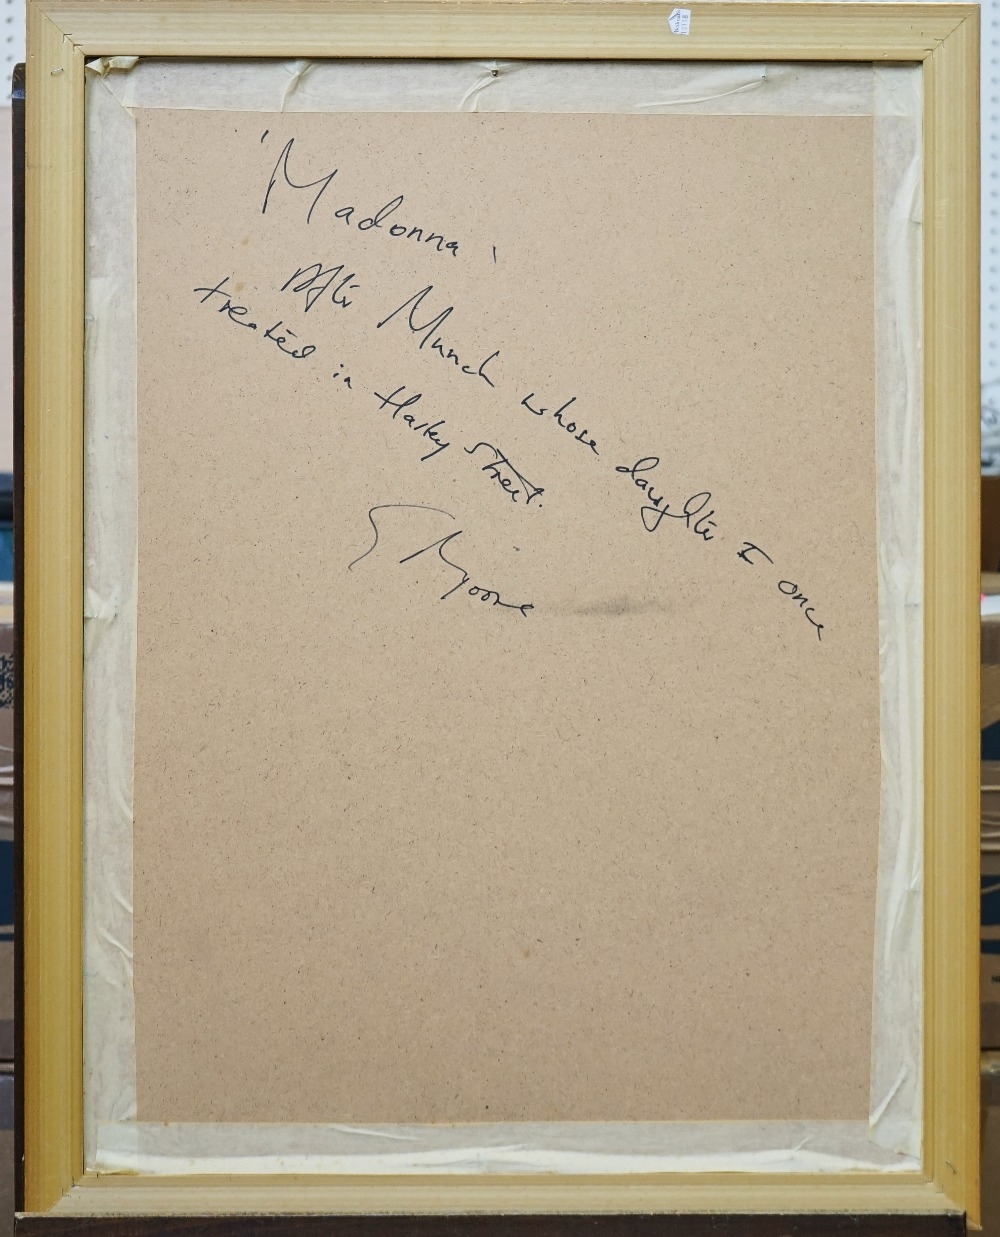 'Madonna'
After Munch whose daughter I once
treated in Harley Street.
G Moore